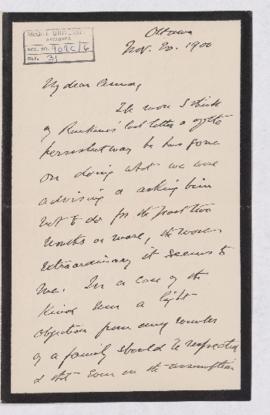 Ottawa
Nov. 20. 1900
My dear
The more I think
of last letter & of the
persistent way he has gone
on doing what we were
advising & asking him
not to do for the past two
months or more, the more
extraordinary it seems to
me. In a case of the
kind even a slight
objection from any member
of a family should be respected
& that even on the assumption